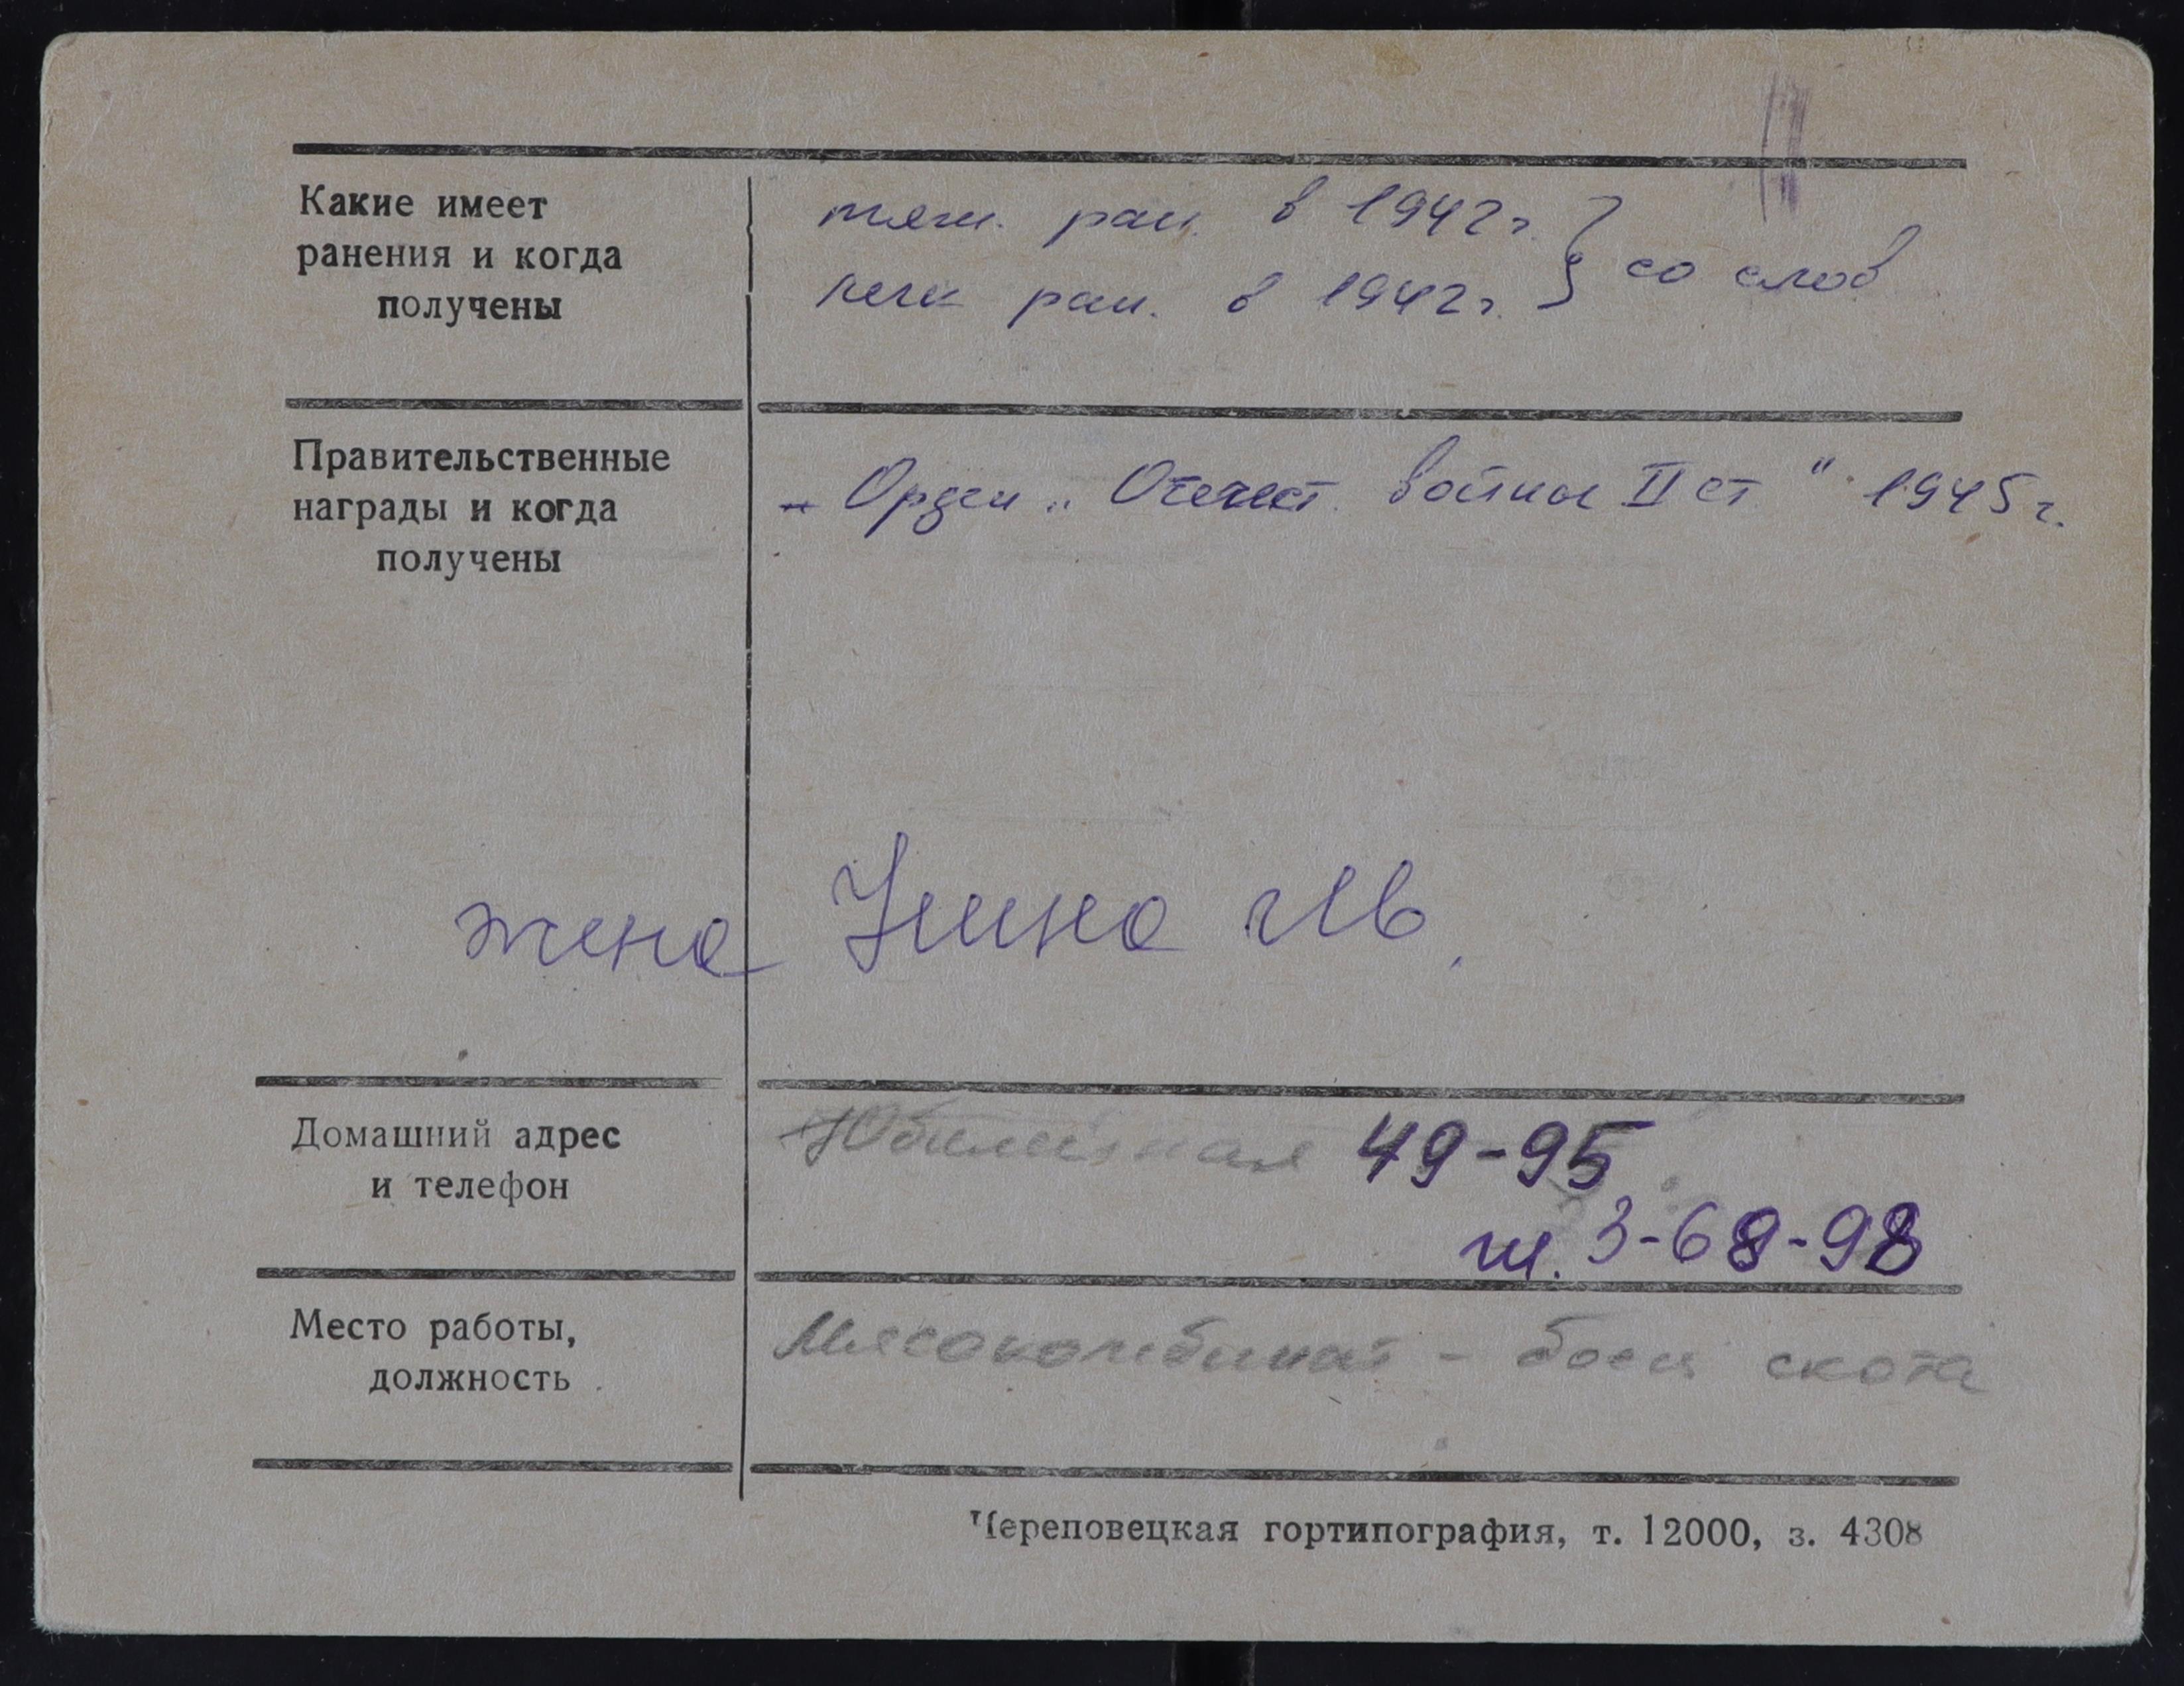 Какие имеет
ранения и когда
получены
тяж. ран. в 1942г. } со слов
легк ран. в 1942г.
Правительственные
награды и когда
получены
- Орден „Отечест. войны II ст" 1945г.
жена Нина Ив.
Домашний адрес
и телефон
Юбилейная 49-95
т. 3-68-98
Место работы,
должность
Мясокомбинат - боец скота
Череповецкая гортипография, т. 12000, з. 4308